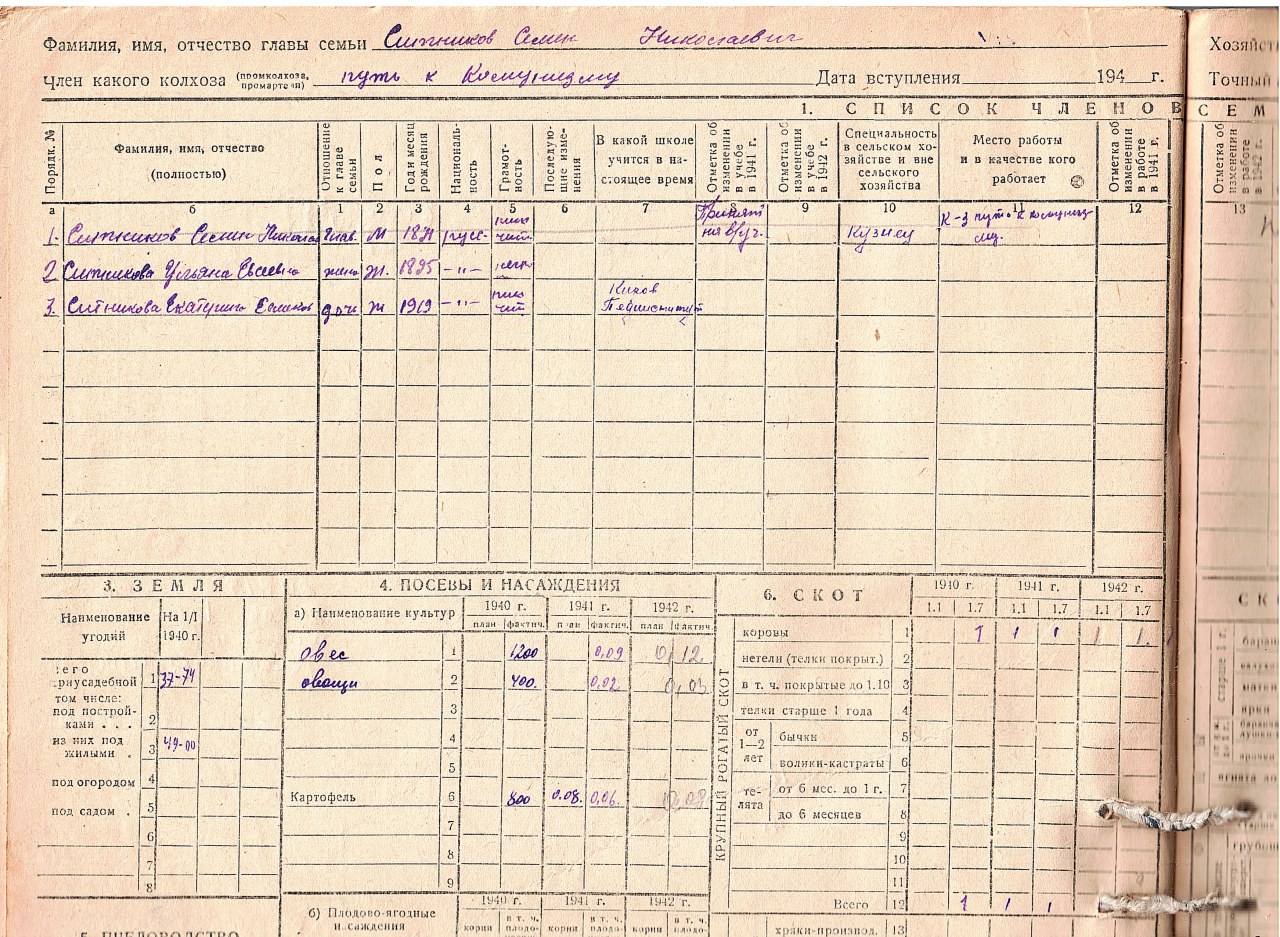 Фамилия, имя, отчество главы семьи Ситников Семен Николаевич
Член какого колхоза (промколхоза, промартели) путь к Комунизму Дата вступления 194 г.
Хозяйст
Точный
1. СПИСОК ЧЛЕНОВ СЕМ
Порядк. №
Фамилия, имя, отчество (полностью)
Отношение к главе семьи
Пол
Год и месяц рождения
Националь-ность
Грамот-ность
Последую-щие изме-нения
В какой школе учится в на-стоящее время
Отметка об изменении в учебе в 1941 г.
Отметка об изменении в учебе в 1942 г.
Специальность в сельском хо-зяйстве и вне сельского хозяйства
Место работы и в качестве кого работает
Отметка об изменении в работе в 1941 г.
Отметка об изменении в работе в 1942 г.
а б 1 2 3 4 5 6 7 8 9 10 11 12 13
1. Ситников Семен Николае глав. М 1871 русс- Кузнец К-з путь к комуниз му.
2 Ситникова Ульяна Евсеевна жена Ж. 1895 –"–
3. Ситникова Екатерина дочь Ж 1919 –"– Киров Пединститут
3. ЗЕМЛЯ
Наименование угодий
На 1/I 1940 г.
всего приусадебной 1 37-74
том числе:
под построй-ками . . . 2
из них под жилыми . 3 49-00
под огородом 4
под садом . 5
6
7
8
4. ПОСЕВЫ И НАСАЖДЕНИЯ
а) Наименование культур 1940 г. 1941 г. 1942 г.
план фактич. план фактич. план фактич.
овес 1 1200 0,09 0,12
овощи 2 400. 0,02 0,03
3
4
5
Картофель 6 800 0.08. 0,06.
7
8
9
б) Плодово-ягодные насаждения 1940 г. 1941 г. 1942 г.
корни в т. ч. плодо- корни в т. ч. плодо- корни в т. ч. плодо-
5. ПЧЕЛОВОДСТВО
6. СКОТ 1940 г. 1941 г. 1942 г.
1.1 1.7 1.1 1.7 1.1 1.7
КРУПНЫЙ РОГАТЫЙ СКОТ
коровы 1 1 1 1 1 1.
нетели (телки покрыт.) 2
в т. ч. покрытые до 1.10 3
телки старше 1 года 4
от 1—2 лет бычки 5
волики-кастраты 6
те-лята от 6 мес. до 1 г. 7
до 6 месяцев 8
9
10
11
Всего 12 1 1 1
хряки-производ. 13
СК
старше 1 г.
баран
матки
ярки